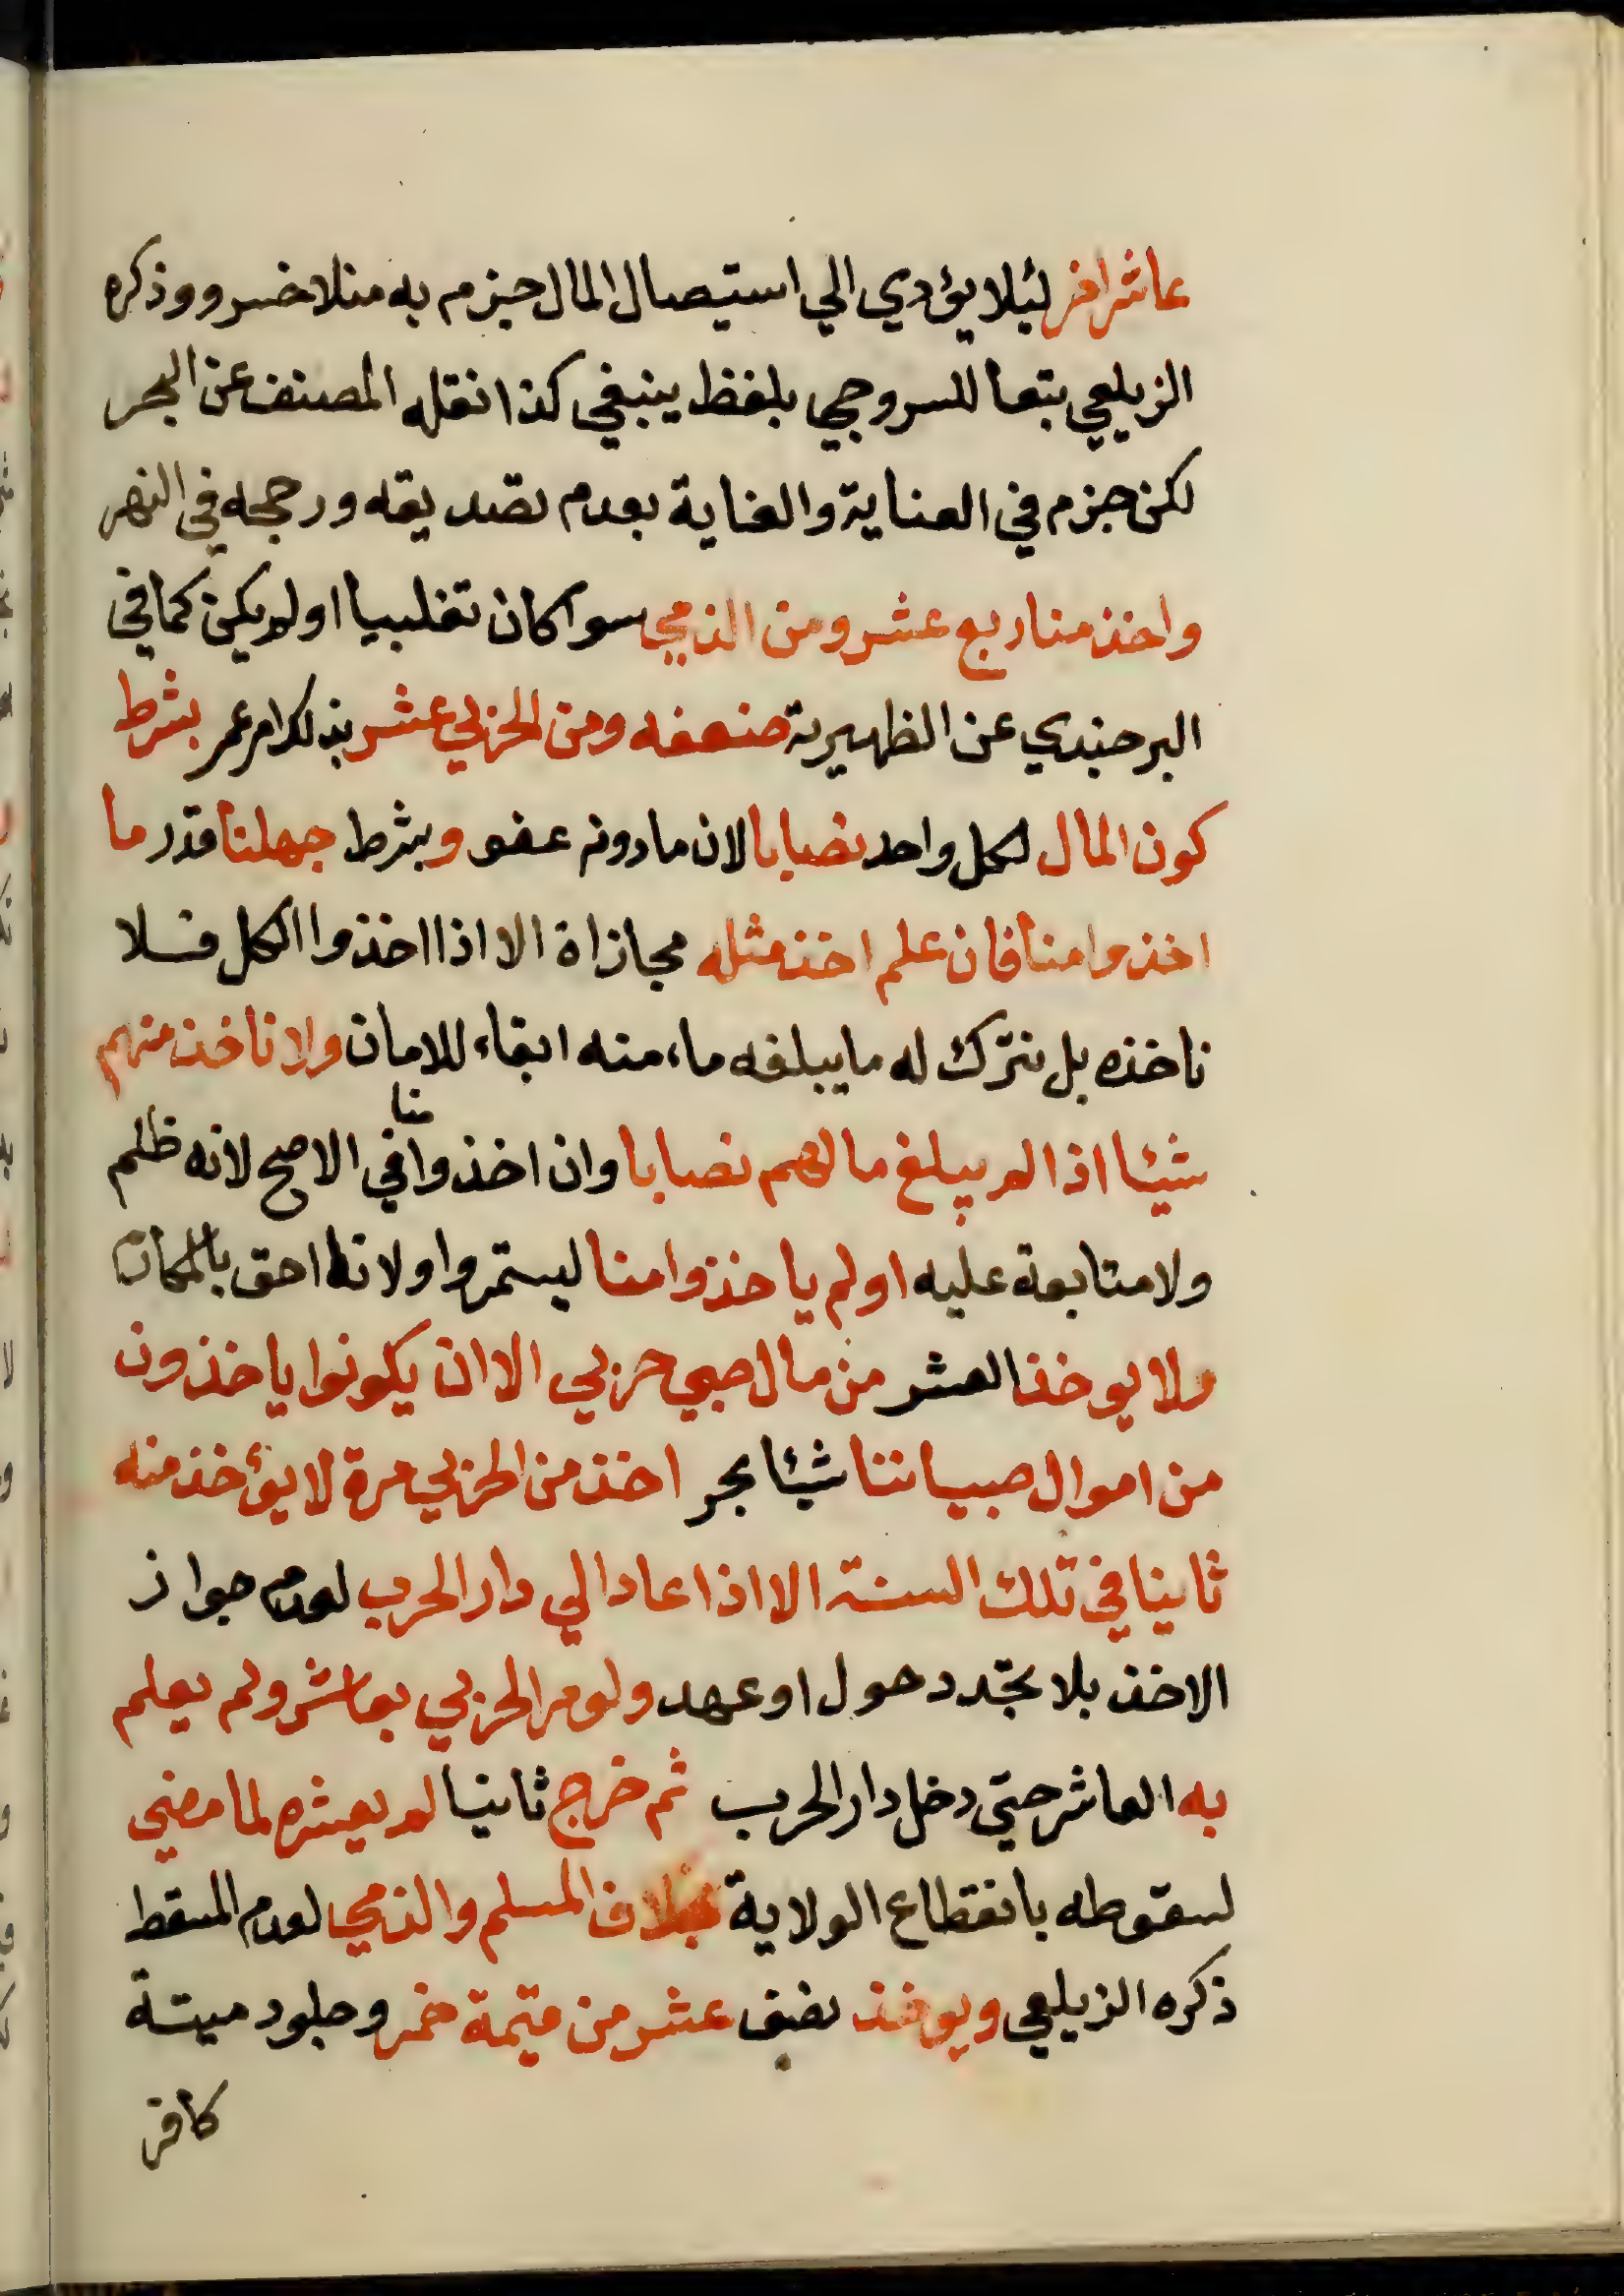 عاشر اخر ليلا يؤدي الي استيصال المال جزم به منلا خسرو وذكره
الزيلعي تبعا للسروجي بلفظ ينبغي كذا نقله المصنف عن البحر
لكن جزم في العناية والغاية بعدم تصديقه ورجحه في النهر
واخذ منا ربع عشر ومن الذمي سوا كان تغلبيا او لم يكن كما في
البرجندي عن الظهيرية ضعفه ومن الحربي عشر بذلك امر عمر بشرط
كون المال لكل واحد نصابا لان ما دونه عفو وبشرط جهلنا قدر ما
اخذوا منا فان علم اخذ مثله مجازاة الا اذا اخذوا الكل فلا
ناخذه بل نترك له ما يبلغه ماءمنه ابقاء للامان ولا ناخذ منهم
شيئا اذا لم يبلغ مالهم نصابا وان اخذوا منا في الاصح لانه ظلم
ولا متابعة عليه او لم ياخذوا منا ليستمروا ولانا احق بالمكارم
ولا يوخذ العشر من مال صبي حربي الا ان يكونوا ياخذون
من اموال صبياننا شيئا بحر اخذ من الحربي مرة لا يؤخذ منه
ثانيا في تلك السنة الا اذا عاد الي دار الحرب لعدم جواز
الاخذ بلا تجدد حول او عهد ولو مر الحربي بعاشر ولم يعلم
به العاشر حتي دخل دار الحرب ثم خرج ثانيا لم يعشره لما مضي
لسقوطه بانقطاع الولاية بخلاف المسلم والذمي لعدم المسقط
ذكره الزيلعي ويوخذ نصف عشر من قيمة خمر وجلود ميتة
كافر